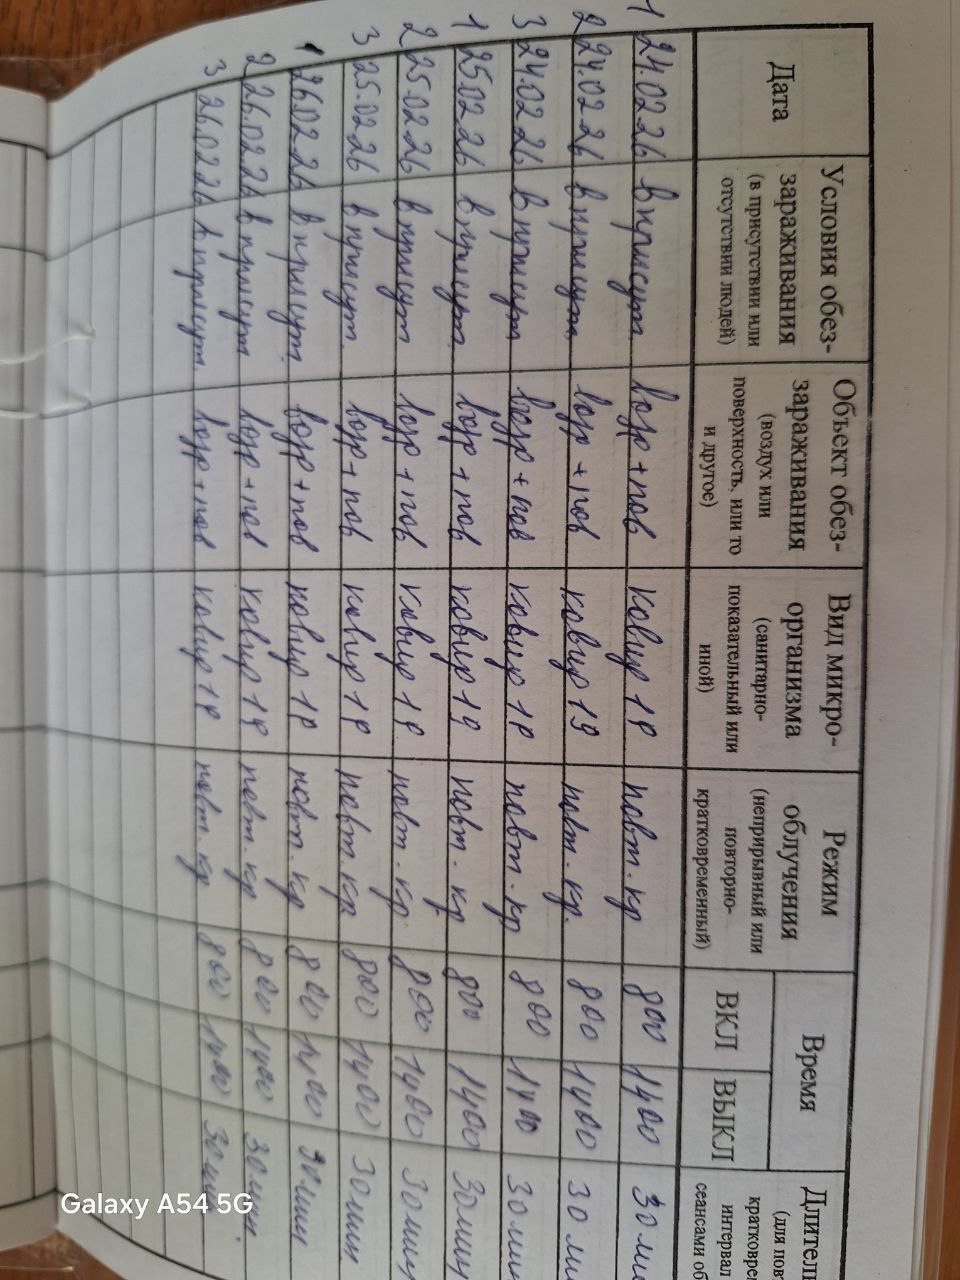 Дата
Условия обез-
зараживания
(в присутствии или
отсутствии людей)
Объект обез-
зараживания
(воздух или
поверхность, или то
и другое)
Вид микро-
организма
(санитарно-
показательный или
иной)
Режим
облучения
(неприрывный или
повторно-
кратковременный)
Время
ВКЛ ВЫКЛ
(для
интервал
сеансами
1 24.02.26 в присут. возд+пов ковид 19 повт. кр 800 1400 30
2 24.02.26 в присут. возд+пов ковид 19 повт. кр. 800 1400 30
3 24.02.26 в присут возд+пов ковид 19 повт. кр 800 1400 30
1 25.02.26 в присут. возд+пов ковид 19 повт. кр. 800 1400 30мин
2 25.02.26 в присут возд+пов ковид 19 повт. кр. 800 1400 30мин
3 25.02.26 в присут. возд+пов ковид 19 повт. кр. 800 1400 30мин
1 26.02.26 в присут. возд+пов ковид 19 повт. кр 800 1400 30мин
2 26.02.26 в присут возд+пов ковид 19 повт. кр 800 1400 30мин.
3 26.02.26 в присут. возд+пов ковид 19 повт. кр 800 1400 30
Galaxy A54 5G